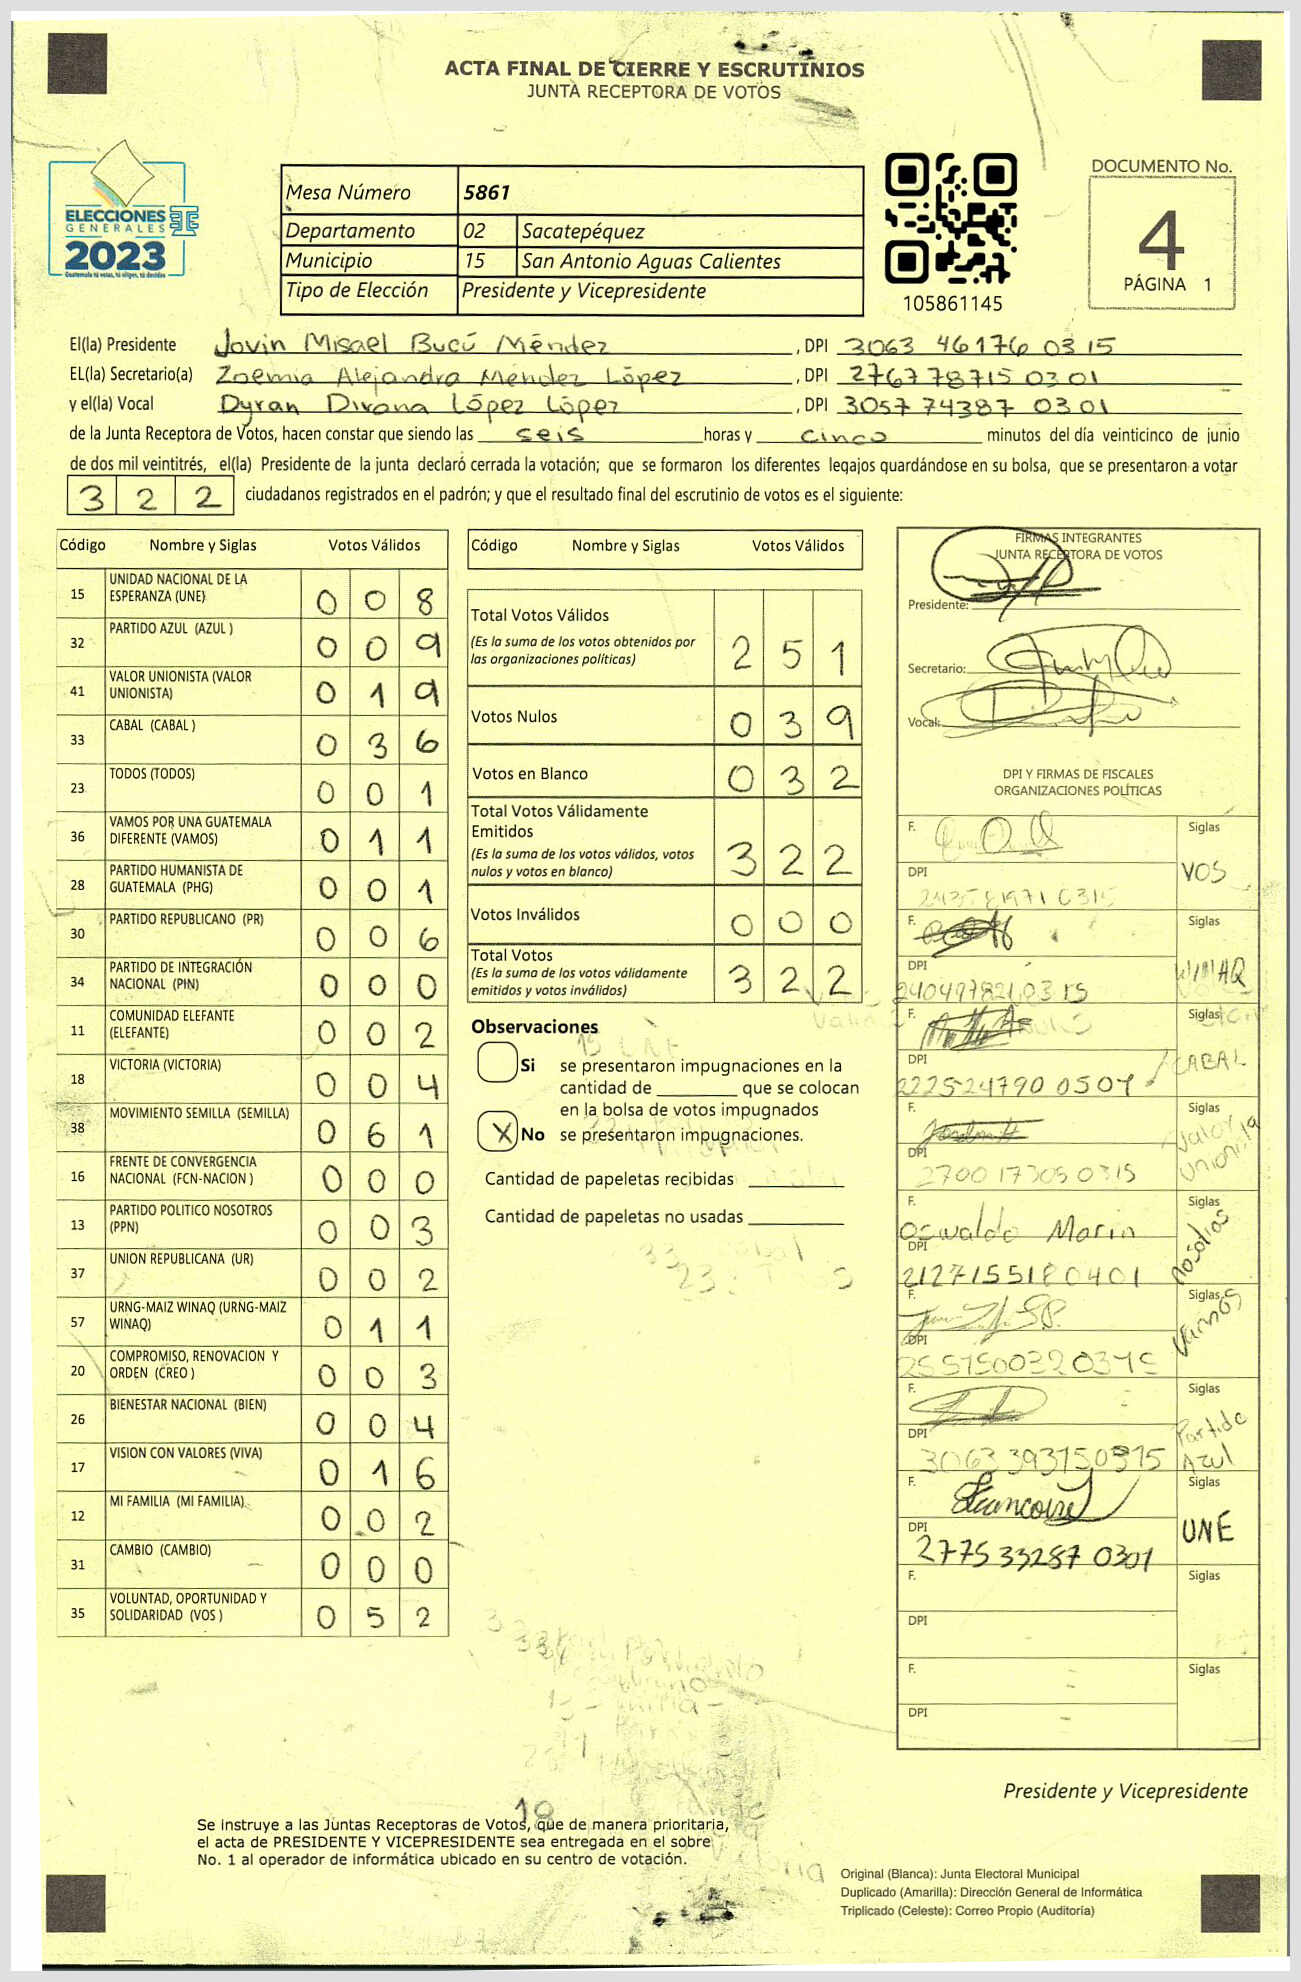 ACTA FINAL DE CIERRE Y ESCRUTINIOS
JUNTA RECEPTORA DE VOTOS
ELECCIONES
GENERALES
2023
Guatemala tú votas, tú eliges, tú decides
Mesa Número 5861
Departamento 02 Sacatepéquez
Municipio 15 San Antonio Aguas Calientes
Tipo de Elección Presidente y Vicepresidente
105861145
DOCUMENTO No.
4
PÁGINA 1
El(la) Presidente Jovin Misael Bucú Méndez, DPI 3063 46176 0315
EL(la) Secretario(a) Zoemia Alejandra Méndez López, DPI 2767 78715 0301
y el(la) Vocal Dyran Divana López López, DPI 3057 74387 0301
de la Junta Receptora de Votos, hacen constar que siendo las seis horas y cinco minutos del día veinticinco de junio
de dos mil veintitrés, el(la) Presidente de la junta declaró cerrada la votación; que se formaron los diferentes legajos guardándose en su bolsa, que se presentaron a votar
322 ciudadanos registrados en el padrón; y que el resultado final del escrutinio de votos es el siguiente:
Código Nombre y Siglas Votos Válidos
15 UNIDAD NACIONAL DE LA ESPERANZA (UNE) 008
32 PARTIDO AZUL (AZUL ) 009
41 VALOR UNIONISTA (VALOR UNIONISTA) 019
33 CABAL (CABAL ) 036
23 TODOS (TODOS) 001
36 VAMOS POR UNA GUATEMALA DIFERENTE (VAMOS) 011
28 PARTIDO HUMANISTA DE GUATEMALA (PHG) 001
30 PARTIDO REPUBLICANO (PR) 006
34 PARTIDO DE INTEGRACIÓN NACIONAL (PIN) 000
11 COMUNIDAD ELEFANTE (ELEFANTE) 002
18 VICTORIA (VICTORIA) 004
38 MOVIMIENTO SEMILLA (SEMILLA) 061
16 FRENTE DE CONVERGENCIA NACIONAL (FCN-NACION ) 000
13 PARTIDO POLITICO NOSOTROS (PPN) 003
37 UNION REPUBLICANA (UR) 002
57 URNG-MAIZ WINAQ (URNG-MAIZ WINAQ) 011
20 COMPROMISO, RENOVACION Y ORDEN (CREO ) 003
26 BIENESTAR NACIONAL (BIEN) 004
17 VISION CON VALORES (VIVA) 016
12 MI FAMILIA (MI FAMILIA) 002
31 CAMBIO (CAMBIO) 000
35 VOLUNTAD, OPORTUNIDAD Y SOLIDARIDAD (VOS ) 052
Código Nombre y Siglas Votos Válidos
Total Votos Válidos 251
(Es la suma de los votos obtenidos por
las organizaciones politicas)
Votos Nulos 039
Votos en Blanco 032
Total Votos Válidamente
Emitidos 322
(Es la suma de los votos válidos, votos
nulos y votos en blanco)
Votos Inválidos 000
Total Votos 322
(Es la suma de los votos válidamente
emitidos y votos inválidos)
Observaciones
Si se presentaron impugnaciones en la
cantidad de ________ que se colocan
en la bolsa de votos impugnados
X No se presentaron impugnaciones.
Cantidad de papeletas recibidas
Cantidad de papeletas no usadas
FIRMAS INTEGRANTES
JUNTA RECEPTORA DE VOTOS
Presidente:
Secretario:
Vocal:
DPI Y FIRMAS DE FISCALES
ORGANIZACIONES POLÍTICAS
F. Siglas
DPI VOS
F. Siglas
DPI 2404978210315 WINAQ
F. Siglas
DPI 222524790 0507 CABAL
F. Siglas
DPI 2700 17305 0315 Valor Unionista
F. Oswaldo Marin Siglas
DPI 2127155180401
F. Siglas
DPI 2557500320315 Vamos
F. Siglas
DPI 3063 39375 0315 Partido Azul
F. Siglas
DPI 2775 33287 0301 UNE
F. Siglas
DPI
F. Siglas
DPI
Presidente y Vicepresidente
18
Se instruye a las Juntas Receptoras de Votos, que de manera prioritaria,
el acta de PRESIDENTE Y VICEPRESIDENTE sea entregada en el sobre
No. 1 al operador de informática ubicado en su centro de votación.
Original (Blanca): Junta Electoral Municipal
Duplicado (Amarilla): Dirección General de Informática
Triplicado (Celeste): Correo Propio (Auditoría)